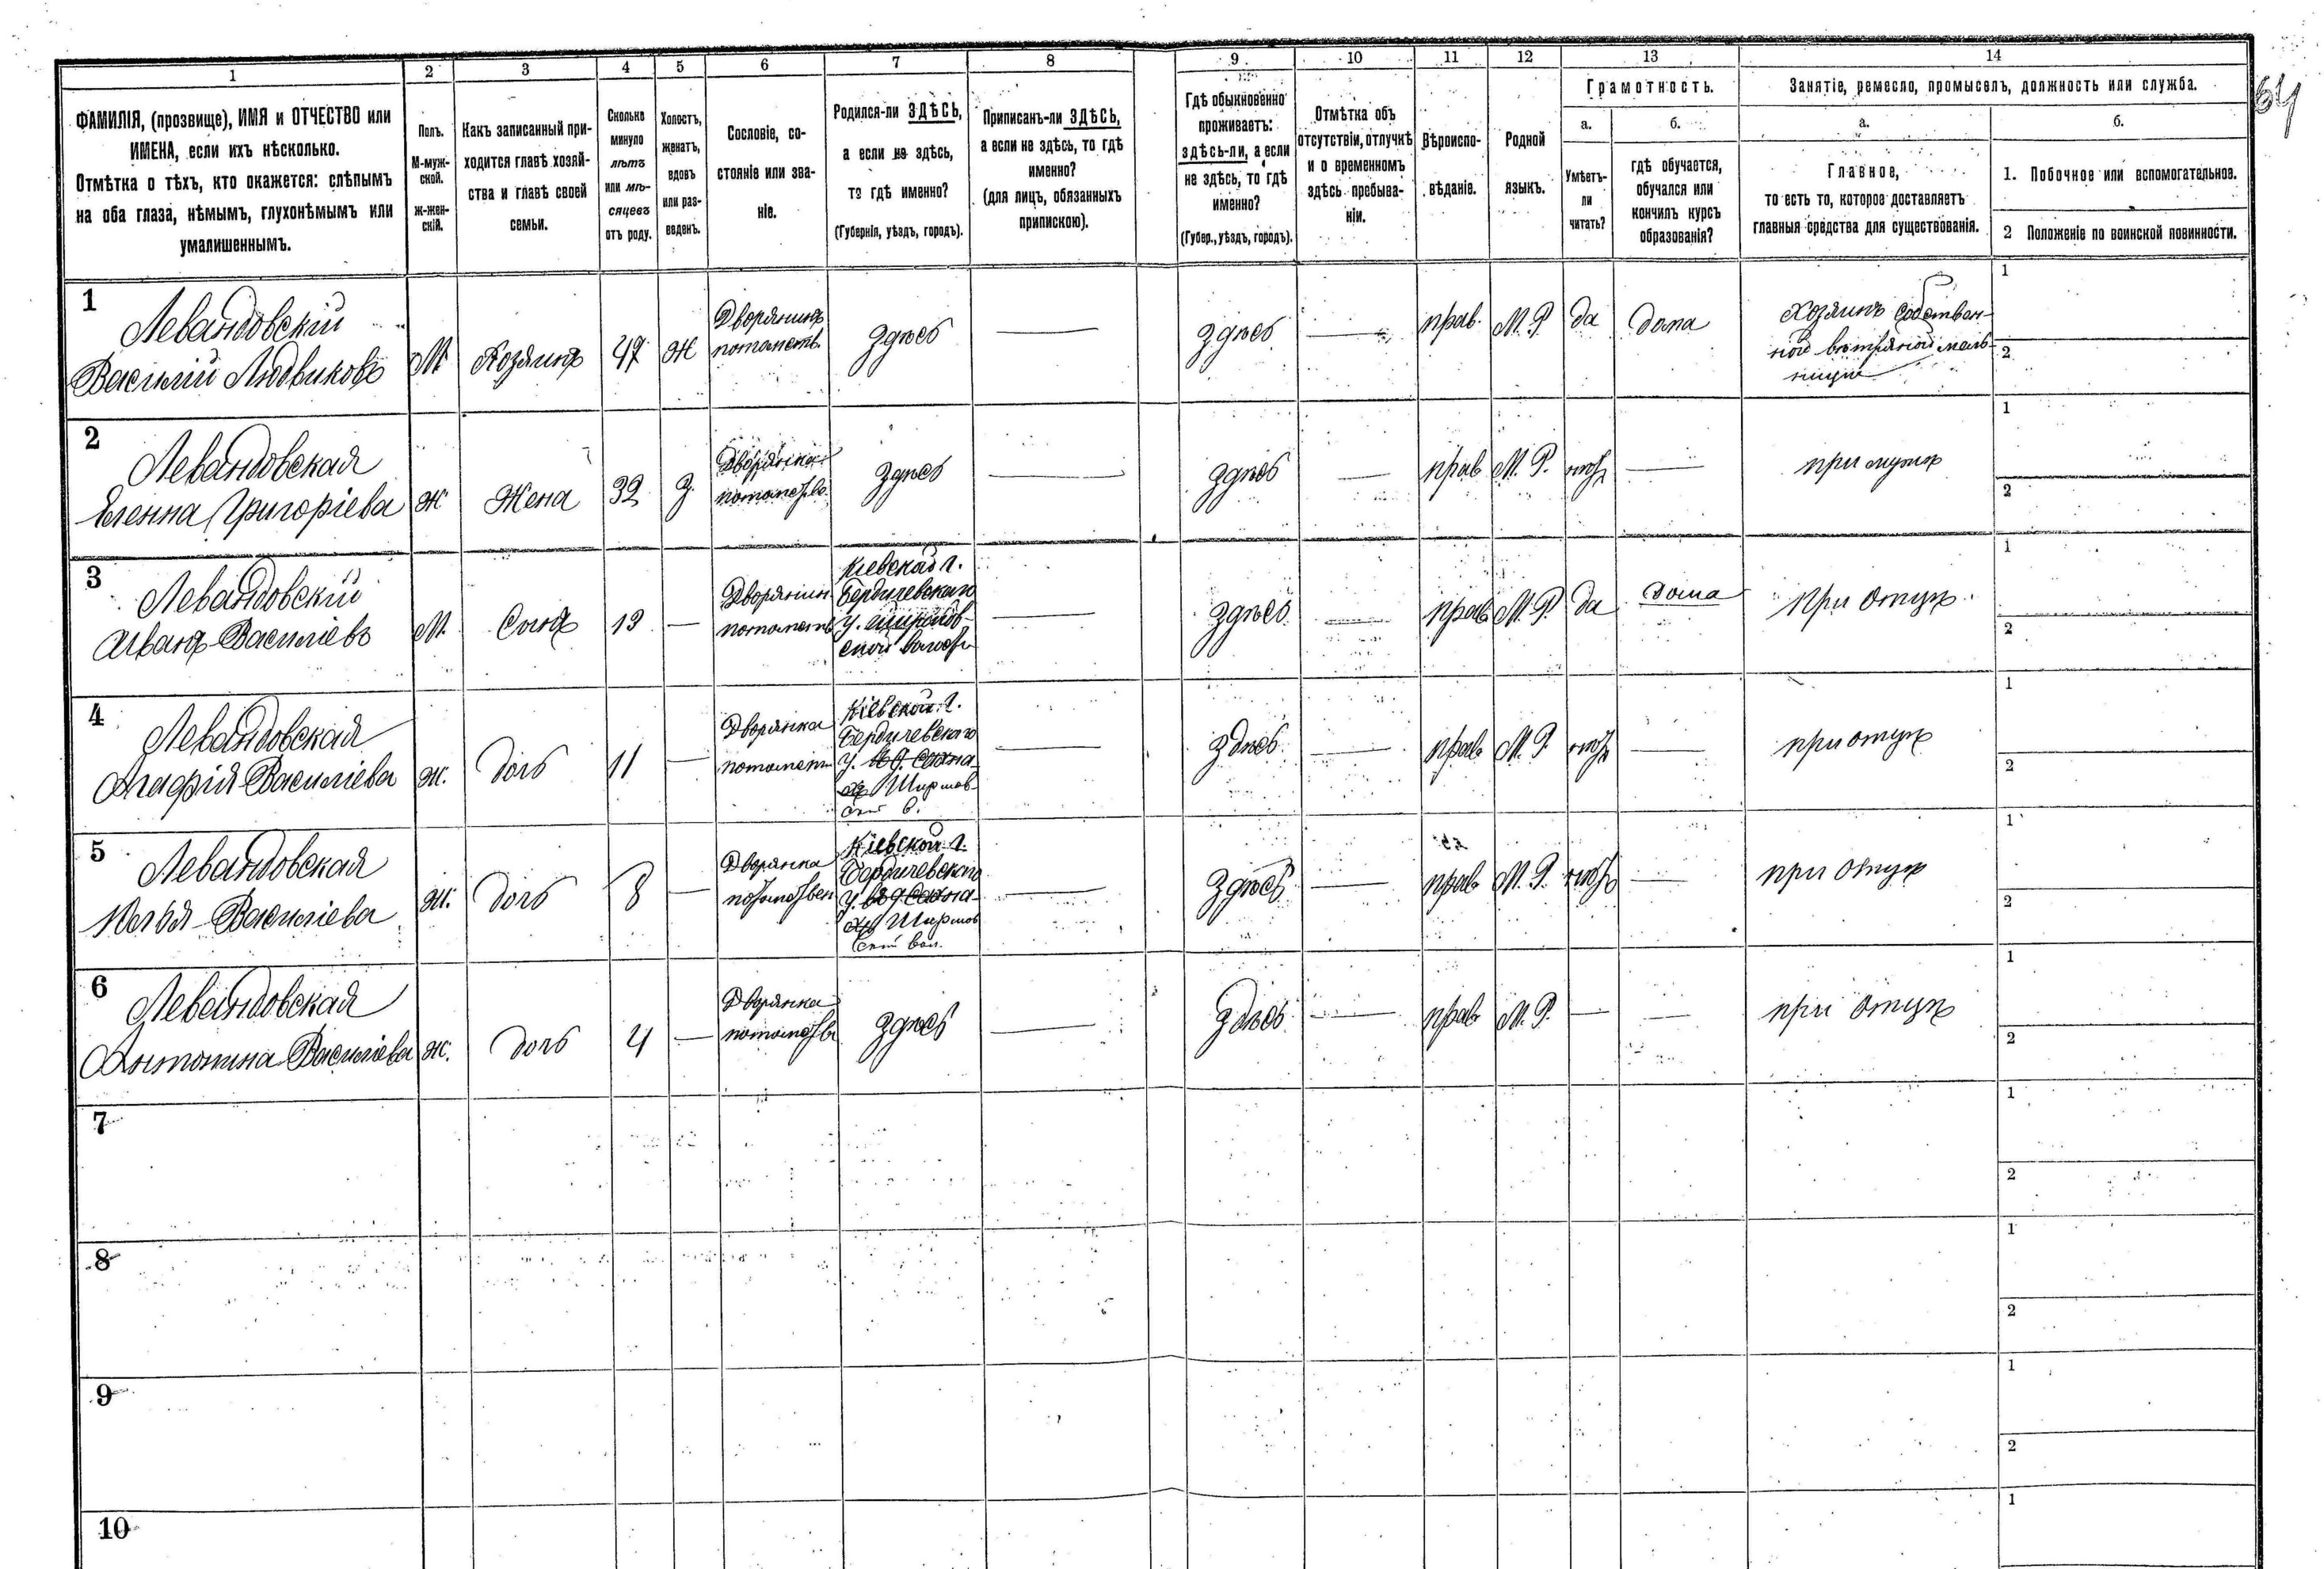 64
1 2 3 4 5 6 7 8 9 10 11 12 13 14
ФАМИЛІЯ, (прозвище), ИМЯ и ОТЧЕСТВО или
ИМЕНА, если ихъ нѣсколько.
Отмѣтка о тѣхъ, кто окажется: слѣпымъ
на оба глаза, нѣмымъ, глухонѣмымъ или
умалишеннымъ.
Полъ.
М-муж-
ской.
Ж-жен-
скій.
Какъ записанный при-
ходится главѣ хозяй-
ства и главѣ своей
семьи.
Сколько
минуло
лѣтъ
или мѣ-
сяцевъ
отъ роду.
Холостъ,
женатъ,
вдовъ
или раз-
веденъ.
Сословіе, со-
стояніе или зва-
ніе.
Родился-ли ЗДѢСЬ,
а если не здѣсь,
то гдѣ именно?
(Губернія, уѣздъ, городъ).
Приписанъ-ли ЗДѢСЬ,
а если не здѣсь, то гдѣ
именно?
(для лицъ, обязанныхъ
припискою).
Гдѣ обыкновенно
проживаетъ:
здѣсь-ли, а если
не здѣсь, то гдѣ
именно?
(Губер., уѣздъ, городъ).
Отмѣтка объ
отсутствіи, отлучкѣ
и о временномъ
здѣсь пребыва-
ніи.
Вѣроиспо-
вѣданіе.
Родной
языкъ.
Грамотность.
а.
Умѣетъ-
ли
читать?
б.
гдѣ обучается,
обучался или
кончилъ курсъ
образованія?
Занятіе, ремесло, промыселъ, должность или служба.
а.
Главное,
то есть то, которое доставляетъ
главныя средства для существованія.
б.
1. Побочное или вспомогательное.
2 Положеніе по воинской повинности.
1
Левандовскій
Василій Людвиковъ
М
Хозяинъ
47
Ж
Дворянинъ
потомств.
здѣсь
здѣсь
прав.
М. Р.
да
дома
Хозяинъ собствен-
ной вѣтряной мель-
ницы
1
2
2
Левандовская
Еленна Григоріева
Ж
Жена
32
З.
Дворянка
потомство
здѣсь
здѣсь
прав
М. Р.
нѣтъ
при мужѣ
1
2
3
Левандовскій
Иванъ Василіевъ
М.
Сынъ
13
Дворянин
потомств
Кіевской г.
Бердичевскаго
у. Ширмов-
ской волости
здѣсь
прав
М. Р.
да
дома
при отцѣ
1
2
4
Левандовская
Агафія Василіева
ж.
дочь
11
Дворянка
потомств
Кіевской г.
Бердичевскаго
у.
Ширмов-
ской в.
здѣсь
прав
М. Р.
нѣтъ
при отцѣ
1
2
5
Левандовская
Василіева
ж.
дочь
8
Дворянка
потомствен
Кіевской г.
Бердичевскаго
у
Ширмов
ской вол.
здѣсь
прав
М. Р.
нѣтъ
при отцѣ
1
2
6
Левандовская
Антонина Василіева
ж.
дочь
4
Дворянка
потомств
здѣсь
здѣсь
прав
М. Р.
при отцѣ
1
2
7
1
2
8
1
2
9
1
2
10
1